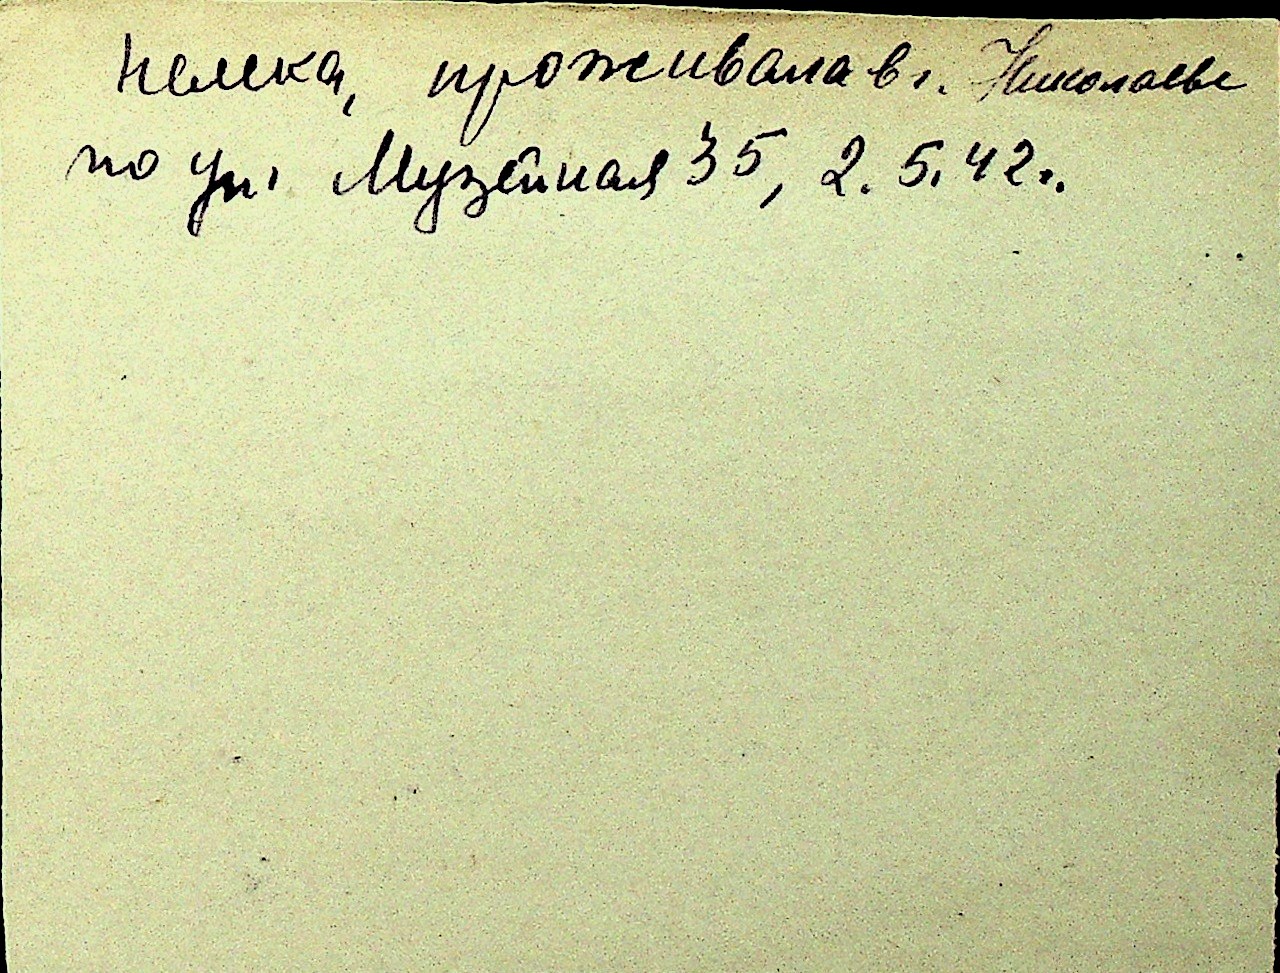 немка, проживала в г. Николаеве
по ул. Музейная 35, 2.5.42г.